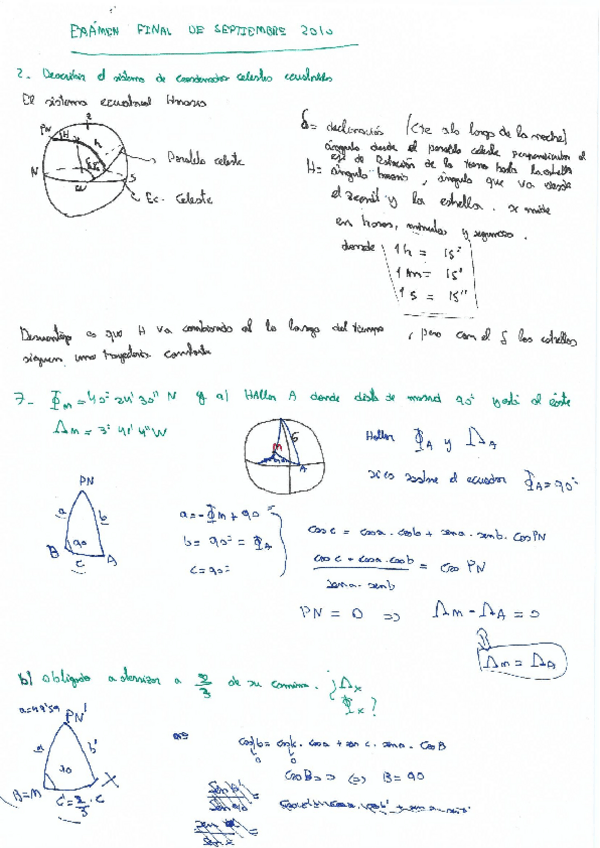 EXÁMEN FINAL DE SEPTIEMBRE 2010
2. Describir el sistema de coordenadas celestes ecuatoriales
El sistema ecuatorial Horario
PN H Z h
N S
Paralelo celeste
Ec. Celeste
δ = declinación (Cte a lo largo de la noche)
ángulo desde el paralelo celeste perpendicular al
eje de Rotación de la tierra hasta la estrella
H = ángulo horario, ángulo que va desde
el zenit y la estrella. se mide
en horas, minutos y segundos.
donde 1h = 15º
1m = 15'
1s = 15''
Desventaja es que H va cambiando al lo largo del tiempo, pero con el δ las estrellas
siguen una trayectoria constante
7- Φm = 40º 24' 30'' N y a) Hallar A donde dista de madrid 90º y está al este
Λm = 3º 41' 4'' W
Hallar ΦA y ΛA
si es sobre el ecuador ΦA = 90º
PN
a b
B 90 A
c
a = -Φm + 90º
b = 90º = ΦA
c = 90º
cos c = cos a · cos b + sen a · sen b · cos PN
cos c - cos a · cos b = cos PN
sen a · sen b
PN = 0 => Λm - ΛA = 0
Λm = ΛA
b) obligado a aterrizar a 2/3 de su camino. ¿Λx
Φx?
PN'
a b'
90
B=M X
c' = 2/3 · c
cos b = cos c · cos a + sen c · sen a · cos B
0 0
cos B => B = 90